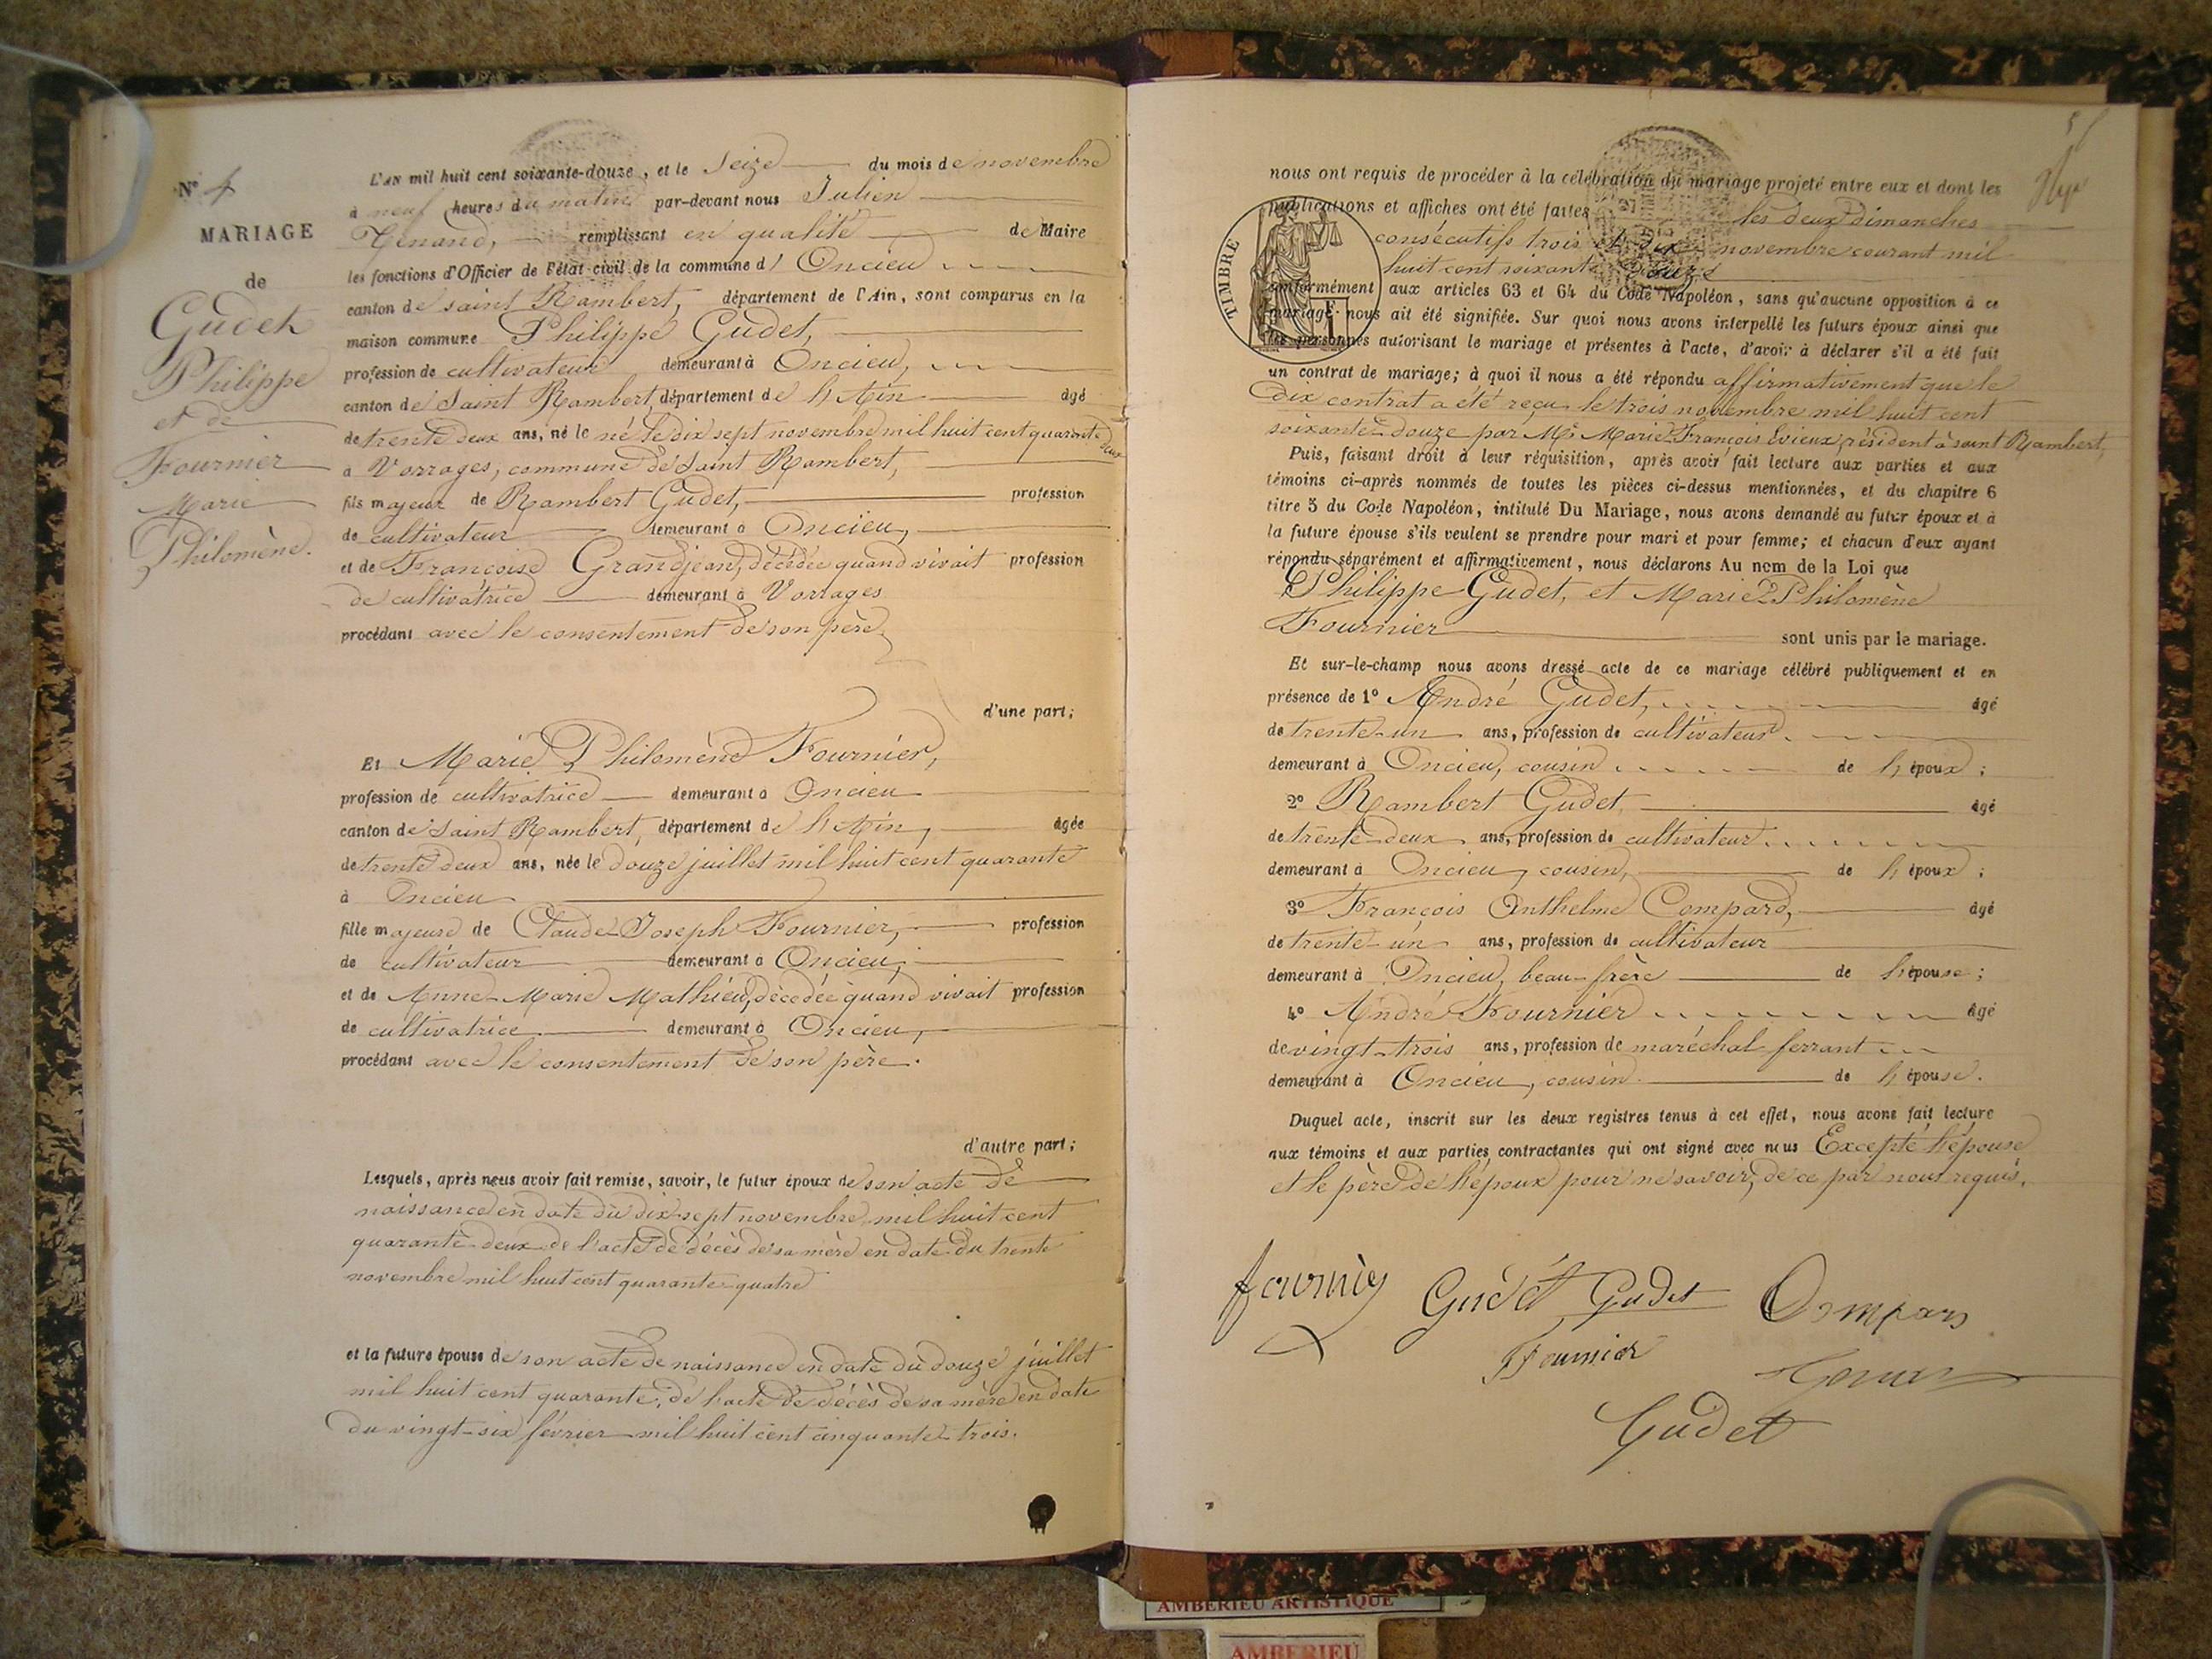 N° 4
MARIAGE
de
Gudet
Philippe
et de
Fournier
Marie
Philomène.
L'AN mil huit cent soixante-douze, et le seize du mois de novembre
à neuf heures du matin par-devant nous Julien
Tenand, remplissant en qualité de Maire
les fonctions d'Officier de l'état civil de la commune d' Oncieu
canton de saint Rambert, département de l'Ain, sont comparus en la
maison commune Philippe Gudet,
profession de cultivateur demeurant à Oncieu,
canton de Saint Rambert, département de l'Ain âgé
de trente deux ans, né le né le dix sept novembre mil huit cent quarante deux
à Vorrages, commune de Saint Rambert,
fils majeur de Rambert Gudet, profession
de cultivateur demeurant à Oncieu,
et de Françoise Grandjean, décédée quand vivait profession
de cultivatrice demeurant à Vorrages
procédant avec le consentement de son père,
d'une part;
Et Marie Philomène Fournier,
profession de cultivatrice demeurant à Oncieu
canton de Saint Rambert, département de l'Ain, âgée
de trente deux ans, née le douze juillet mil huit cent quarante
à Oncieu
fille majeure de Claude Joseph Fournier, profession
de cultivateur demeurant à Oncieu,
et de Anne-Marie Mathieu, décédée quand vivait profession
de cultivatrice demeurant à Oncieu,
procédant avec le consentement de son père.
d'autre part;
Lesquels, après nous avoir fait remise, savoir, le futur époux de son acte de
naissance en date du dix-sept novembre mil huit cent
quarante-deux de l'acte de décès de sa mère en date du trente
novembre mil huit cent quarante-quatre
et la future épouse de son acte de naissance en date du douze juillet
mil huit cent quarante, de l'acte de décès de sa mère en date
du vingt-six février mil huit cent cinquante-trois.
5
nous ont requis de procéder à la célébration du mariage projeté entre eux et dont les
publications et affiches ont été faites les deux dimanches
consécutifs trois et dix novembre courant mil
huit cent soixante douze
conformément aux articles 63 et 64 du Code Napoléon, sans qu'aucune opposition à ce
mariage nous ait été signifiée. Sur quoi nous avons interpellé les futurs époux ainsi que
les personnes autorisant le mariage et présentes à l'acte, d'avoir à déclarer s'il a été fait
un contrat de mariage; à quoi il nous a été répondu affirmativement que le
dix contrat a été reçu le trois novembre mil huit cent
soixante-douze par Me Marie François Evieux, résident à saint Rambert,
TIMBRE
Puis, faisant droit à leur réquisition, après avoir fait lecture aux parties et aux
témoins ci-après nommés de toutes les pièces ci-dessus mentionnées, et du chapitre 6
titre 5 du Code Napoléon, intitulé Du Mariage, nous avons demandé au futur époux et à
la future épouse s'ils veulent se prendre pour mari et pour femme; et chacun d'eux ayant
répondu séparément et affirmativement, nous déclarons Au nom de la Loi que
Philippe Gudet, et Marie Philomène
Fournier sont unis par le mariage.
Et sur-le-champ nous avons dressé acte de ce mariage célébré publiquement et en
présence de 1° André Gudet, âgé
de trente-un ans, profession de cultivateur
demeurant à Oncieu, cousin de l'époux;
2° Rambert Gudet âgé
de trente-deux ans, profession de cultivateur
demeurant à Oncieu, cousin, de l'époux;
3° François Anthelme Compard, âgé
de trente-un ans, profession de cultivateur
demeurant à Oncieu, beau-frère de l'épouse;
4° André Fournier âgé
de vingt-trois ans, profession de maréchal ferrant
demeurant à Oncieu, cousin de l'épouse.
Duquel acte, inscrit sur les deux registres tenus à cet effet, nous avons fait lecture
aux témoins et aux parties contractantes qui ont signé avec nous Excepté l'épouse
et le père de l'époux pour ne savoir, de ce par nous requis.
Gudet Gudet Compars
Fournier
Gudet
AMBERIEU ARTISTIQUE
AMBERIEU